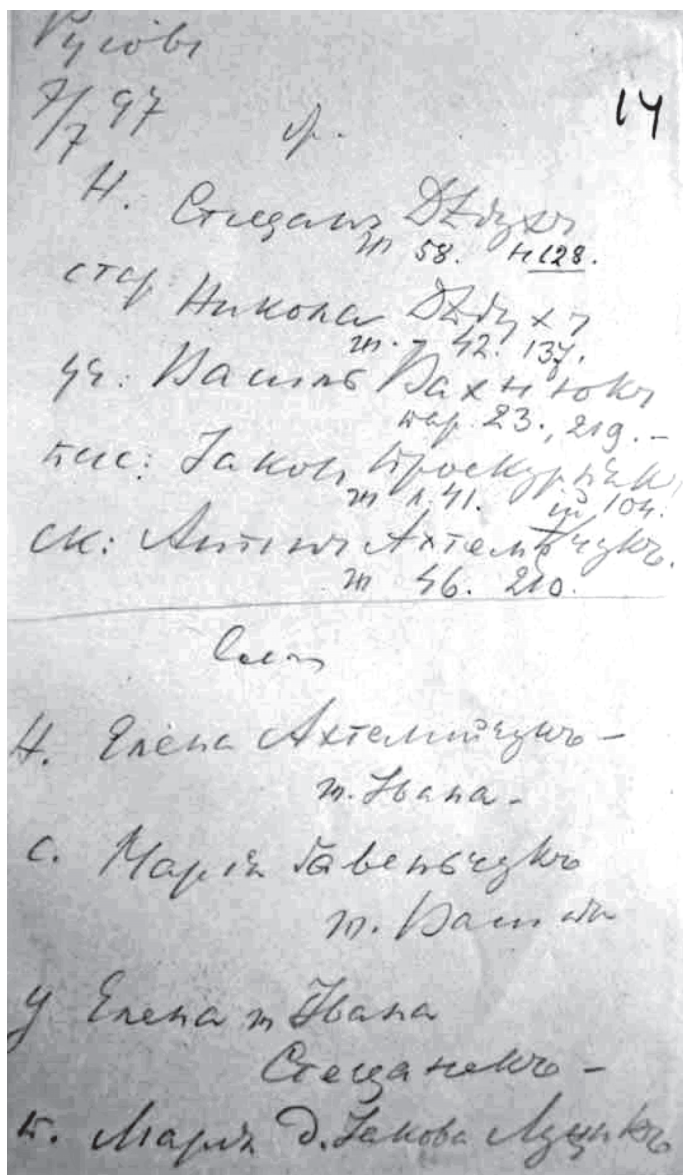 Русовъ
7/7 97
14
Н. Стецанъ Дздухъ
ж 58. н 128.
стар Никола Дздухъ
ж. - 42. 137.
уч: Василь Вахнюкъ
пар. 23., 219. -
пис: Іаковъ Проскурнякъ
ж л. 41. 104.
ск: Антинъ Ахтемійчукъ.
ж 46. 210.
Н. Елена Ахтемійчукъ -
ж. Івана -
с. Марія Гавеньчукъ
ж. Василя
у Елена ж Івана
Стецанюкъ -
п. Марія д. Іакова Луцикъ